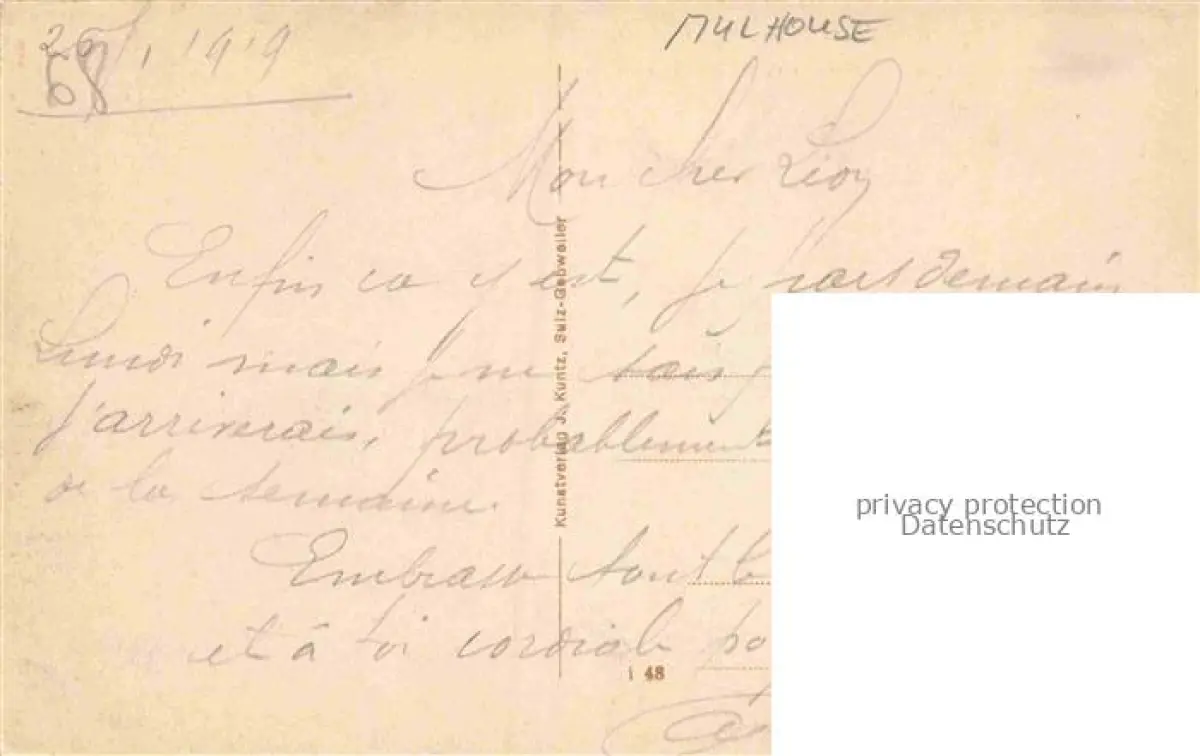 MULHOUSE
1919
68
Mon cher Léon
Enfin ca y est, je pars demain
Lundi mais je ne sais
j'arriverais, probablement
de la semaine.
Embrasse tout le
et à toi cordiale po
Kunstverlag J. Kuntz, Sulz-Gebweiler
1 48
privacy protection
Datenschutz